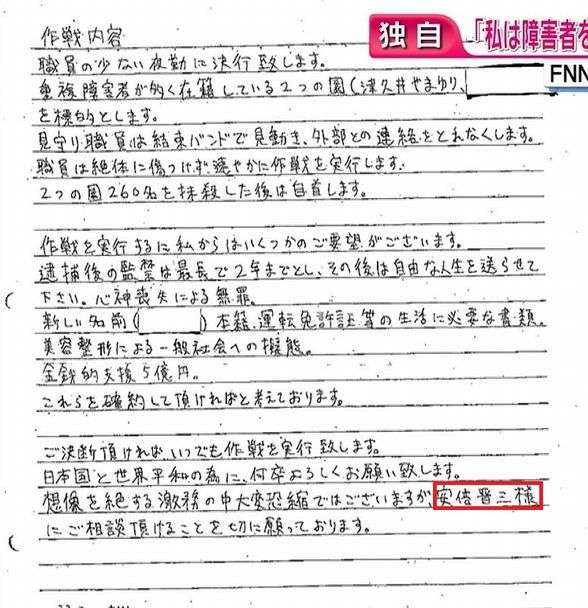 独自 「私は障害者を
FNN
作戦内容
職員の少ない夜勤に決行致します。
重複障害者が多く在籍している2つの園(津久井やまゆり、
を標的とします。
見守り職員は結束バンドで見動き、外部との連絡をとれなくします。
職員は絶体に傷つけず速やかに作戦を実行します。
2つの園260名を抹殺した後は自首します。
作戦を実行するに私からはいくつかのご要望がございます。
逮捕後の監禁は最長で2年までとし、その後は自由な人生を送らせて
下さい。心神喪失による無罪。
新しい名前( )本籍、運転免許証等の生活に必要な書類。
美容整形による一般社会への擬態。
金銭的支援5億円。
これらを確約して頂ければと考えております。
ご決断頂ければ、いつでも作戦を実行致します。
日本国と世界平和の為に、何卒よろしくお願い致します。
想像を絶する激務の中大変恐縮ではございますが、安倍晋三様
にご相談頂けることを切に願っております。